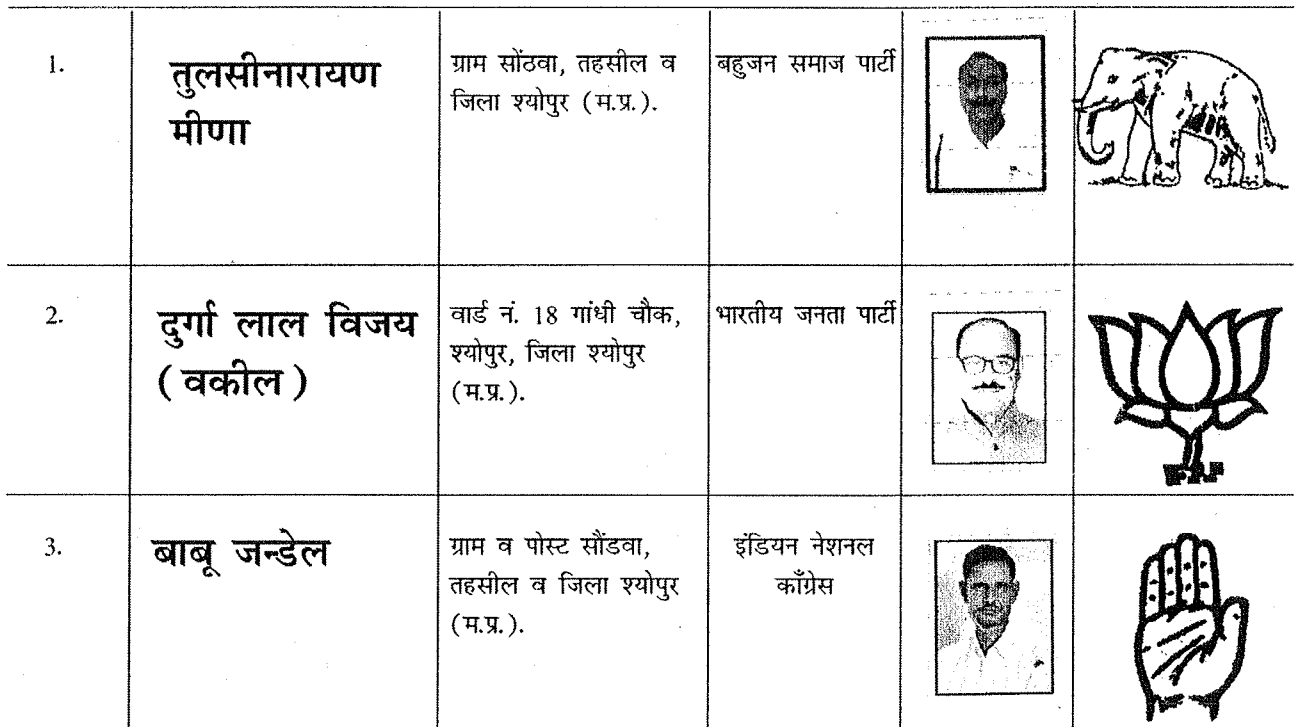 1.
तुलसीनारायण
मीणा
ग्राम सोंठवा, तहसील व
जिला श्योपुर (म.प्र.).
बहुजन समाज पार्टी
2.
दुर्गा लाल विजय
(वकील)
वार्ड नं. 18 गांधी चौक,
श्योपुर, जिला श्योपुर
(म.प्र.).
भारतीय जनता पार्टी
3.
बाबू जन्डेल
ग्राम व पोस्ट सौंडवा,
तहसील व जिला श्योपुर
(म.प्र.).
इंडियन नेशनल
काँग्रेस